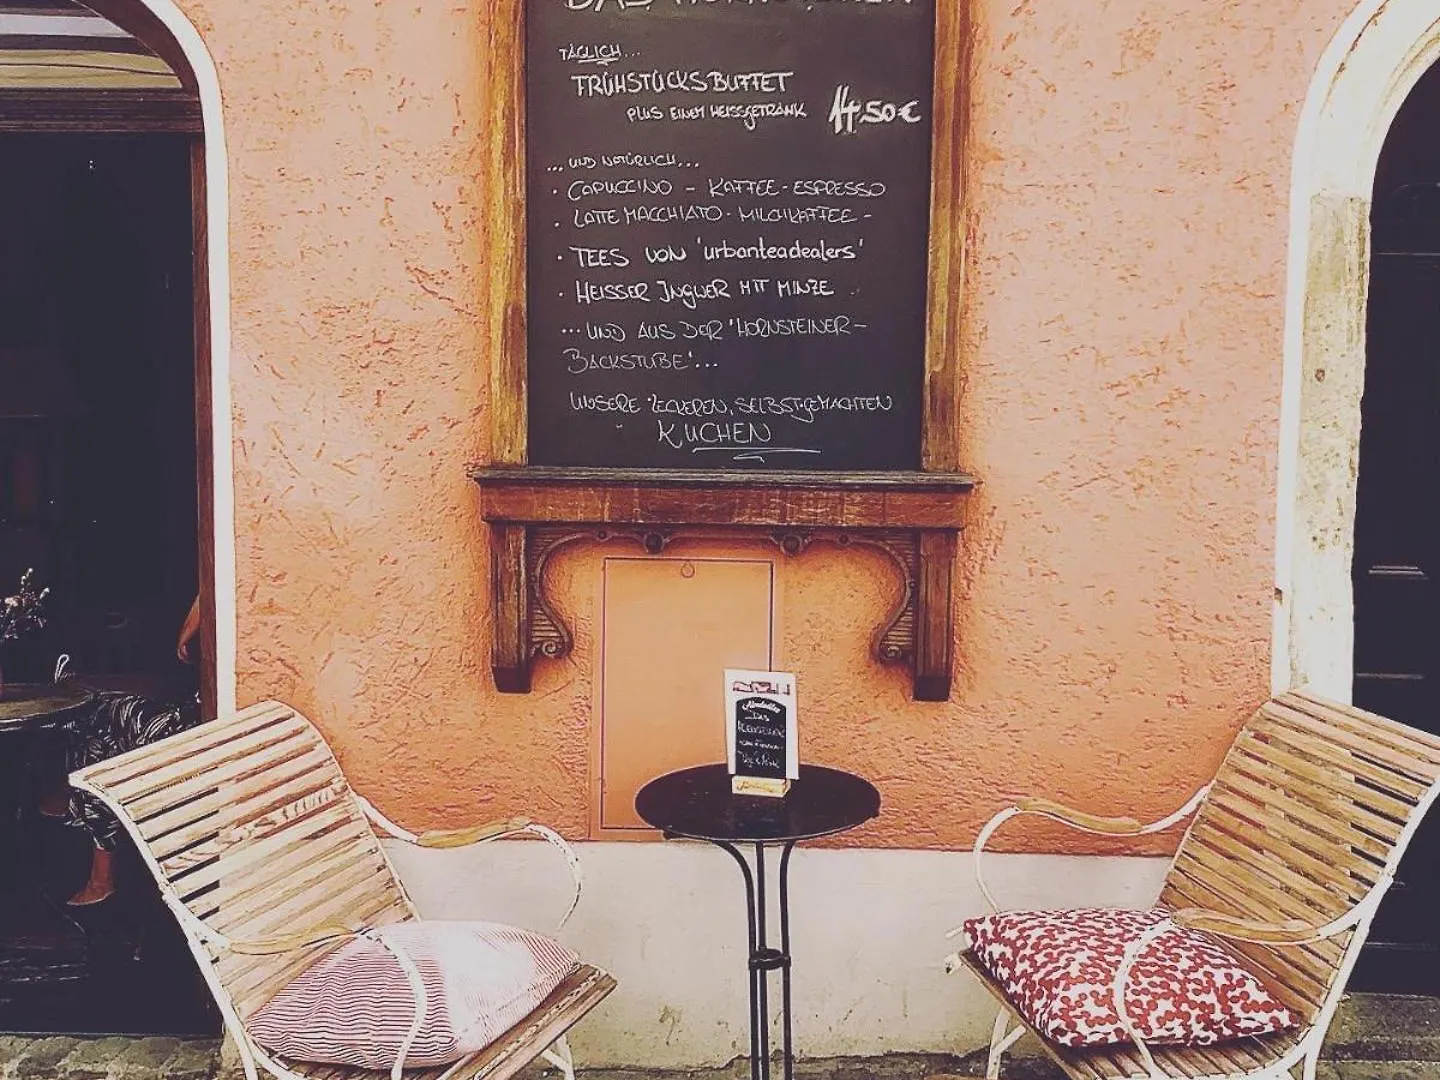 DAS HORNSTEINER
TÄGLICH...
FRÜHSTÜCKSBUFFET
PLUS EINEM HEISSGETRÄNK 14.50€
... UND NATÜRLICH...
· CAPUCCINO - KAFFEE - ESPRESSO
· LATTE MACCHIATO - MILCHKAFFEE -
· TEES VON 'urbanteadealers'
· HEISSER INGWER MIT MINZE
... UND AUS DER 'HORNSTEINER-
BACKSTUBE'...
UNSERE LECKEREN, SELBSTGEMACHTEN
KUCHEN
Almdudler
Das